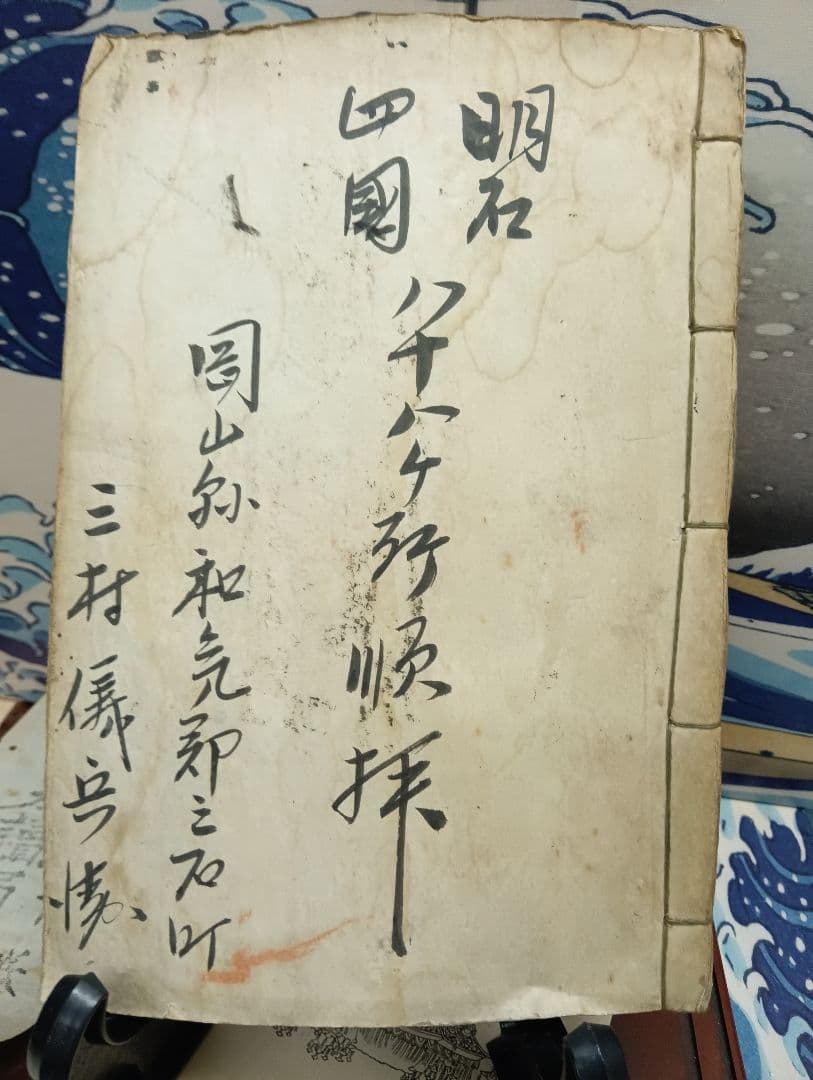 明石
四國
八十八ケ所順拝
岡山縣和気郡三石町
三村儀兵衛